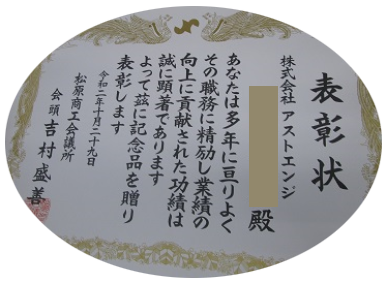 表彰状
株式会社 アストエンジ
殿
あなたは多年に亘りよく
その職務に精励し業績の
向上に貢献された功績は
誠に顕著であります
よって茲に記念品を贈り
表彰します
令和二年十月二十九日
松原商工会議所
会頭 吉村盛善